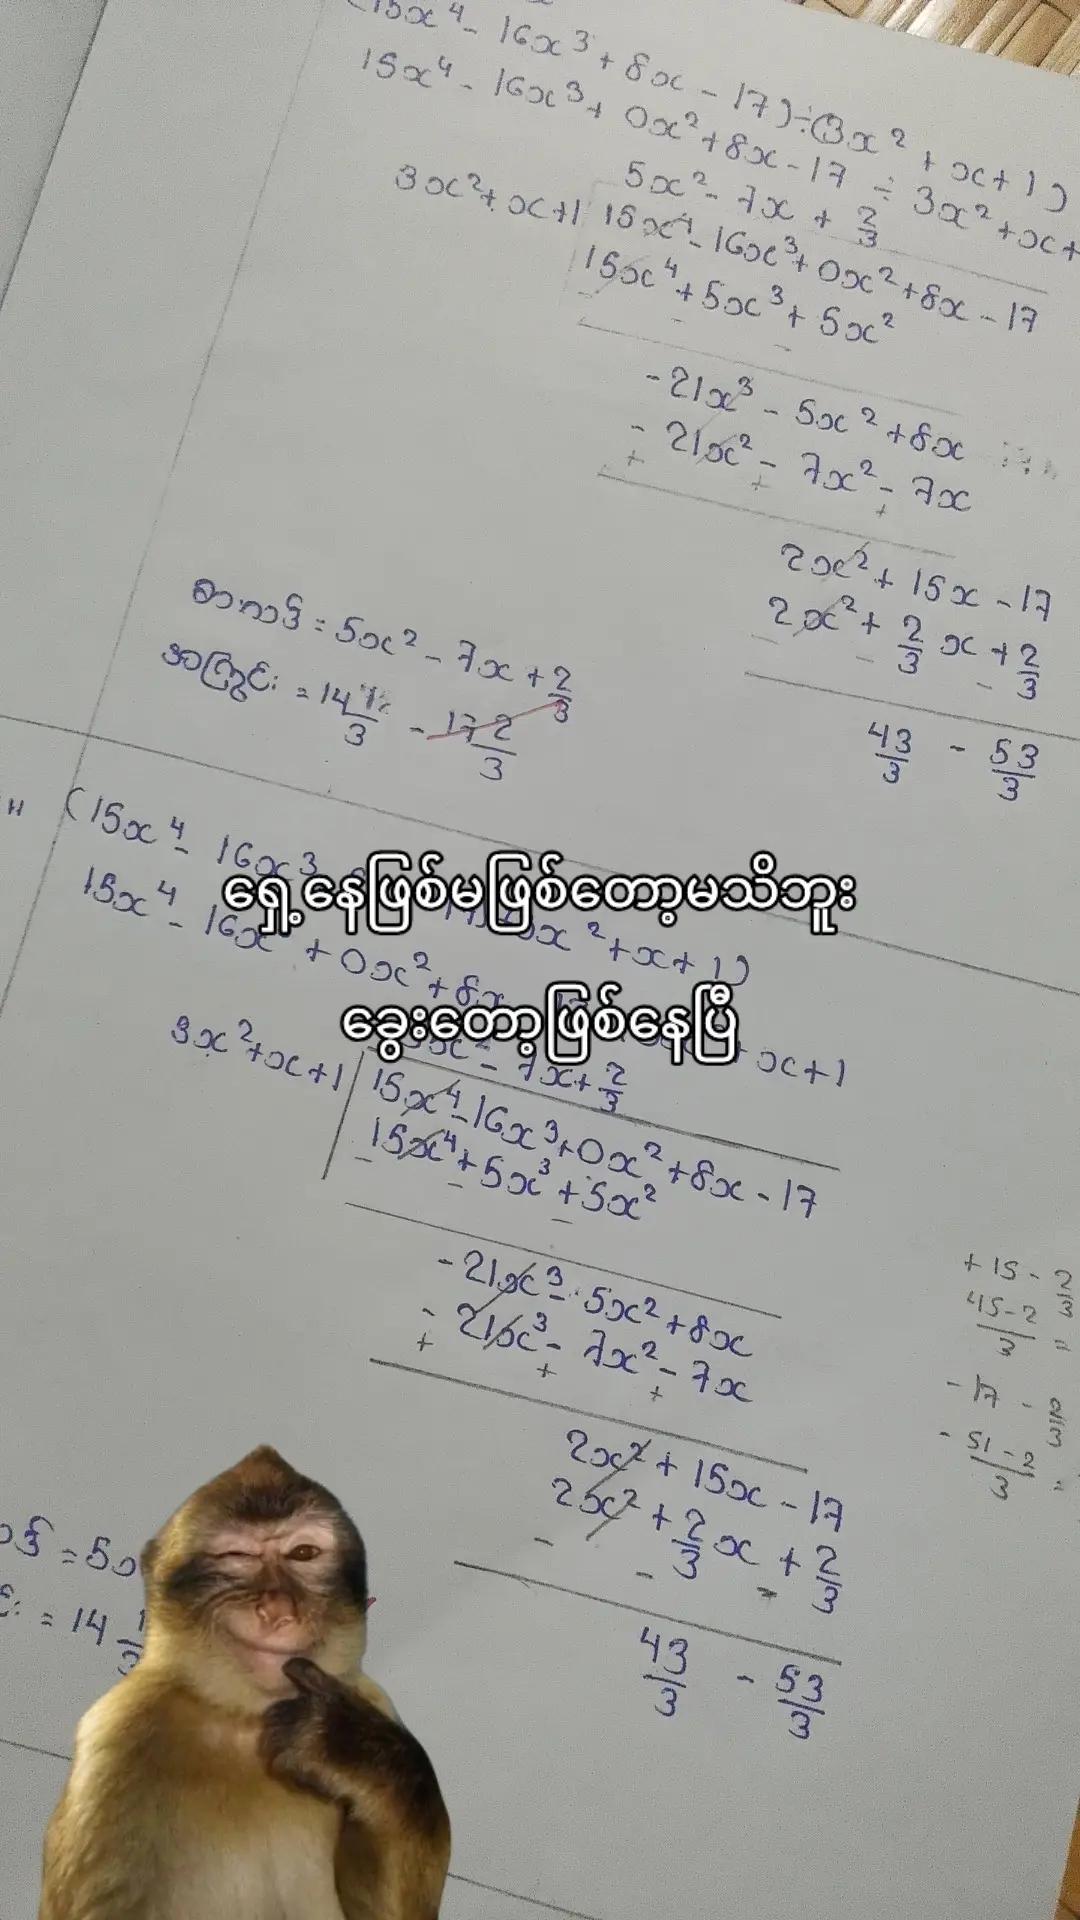 (15x⁴ - 16x³ + 8x - 17) ÷ (3x² + x + 1)
15x⁴ - 16x³ + 0x² + 8x - 17 ÷ 3x² + x +
5x² - 7x + 2/3
3x² + x + 1 15x⁴ - 16x³ + 0x² + 8x - 17
15x⁴ + 5x³ + 5x²
- - -
- 21x³ - 5x² + 8x
- 21x² - 7x² - 7x
+ + +
2x² + 15x - 17
2x² + 2/3 x + 2/3
- - -
43/3 - 53/3
စားလဒ် = 5x² - 7x + 2/3
အကြွင်း = 14
(15x⁴ - 16x³ x² + x + 1)
15x⁴ - 16x³ + 0x² + 8x x + 1
ရှေ့နေဖြစ်မဖြစ်တော့မသိဘူး
ခွေးတော့ဖြစ်နေပြီ
5x² - 7x + 2/3
3x² + x + 1 15x⁴ - 16x³ + 0x² + 8x - 17
15x⁴ + 5x³ + 5x²
- - -
- 21x³ - 5x² + 8x
- 21x³ - 7x² - 7x
+ + +
2x² + 15x - 17
2x² + 2/3 x + 2/3
- - -
43/3 - 53/3
+ 15 - 2/3
45 - 2/3 =
- 17 - 2/3
- 51 - 2/3 =
= 5x
= 14